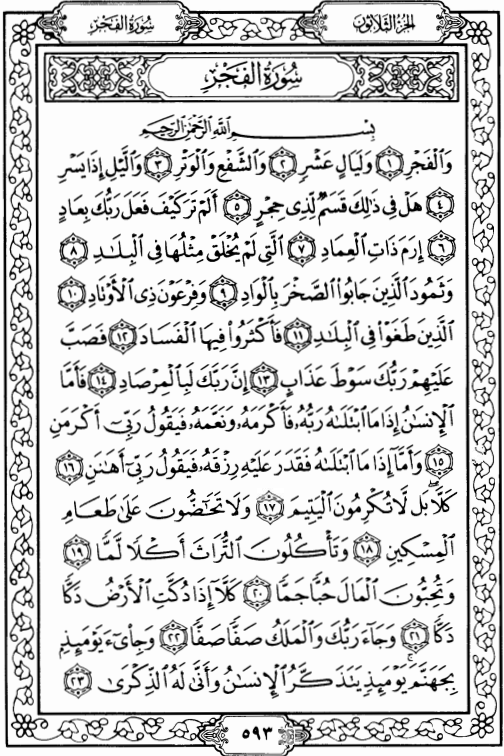 سُورَةُ الفَجْرِ الجُزْءُ الثَّلَاثُونَ
سُورَةُ الفَجْرِ
بِسْمِ اللَّهِ الرَّحْمَٰنِ الرَّحِيمِ
وَالْفَجْرِ ١ وَلَيَالٍ عَشْرٍ ٢ وَالشَّفْعِ وَالْوَتْرِ ٣ وَالَّيْلِ إِذَا يَسْرِ
٤ هَلْ فِى ذَٰلِكَ قَسَمٌ لِّذِى حِجْرٍ ٥ أَلَمْ تَرَ كَيْفَ فَعَلَ رَبُّكَ بِعَادٍ
٦ إِرَمَ ذَاتِ الْعِمَادِ ٧ الَّتِى لَمْ يُخْلَقْ مِثْلُهَا فِى الْبِلَٰدِ ٨
وَثَمُودَ الَّذِينَ جَابُوا۟ الصَّخْرَ بِالْوَادِ ٩ وَفِرْعَوْنَ ذِى الْأَوْتَادِ ١٠
الَّذِينَ طَغَوْا۟ فِى الْبِلَٰدِ ١١ فَأَكْثَرُوا۟ فِيهَا الْفَسَادَ ١٢ فَصَبَّ
عَلَيْهِمْ رَبُّكَ سَوْطَ عَذَابٍ ١٣ إِنَّ رَبَّكَ لَبِالْمِرْصَادِ ١٤ فَأَمَّا
الْإِنسَٰنُ إِذَا مَا ابْتَلَىٰهُ رَبُّهُۥ فَأَكْرَمَهُۥ وَنَعَّمَهُۥ فَيَقُولُ رَبِّىٓ أَكْرَمَنِ
١٥ وَأَمَّآ إِذَا مَا ابْتَلَىٰهُ فَقَدَرَ عَلَيْهِ رِزْقَهُۥ فَيَقُولُ رَبِّىٓ أَهَٰنَنِ ١٦
كَلَّا ۖ بَل لَّا تُكْرِمُونَ الْيَتِيمَ ١٧ وَلَا تَحَٰٓضُّونَ عَلَىٰ طَعَامِ
الْمِسْكِينِ ١٨ وَتَأْكُلُونَ التُّرَاثَ أَكْلًا لَّمًّا ١٩
وَتُحِبُّونَ الْمَالَ حُبًّا جَمًّا ٢٠ كَلَّآ إِذَا دُكَّتِ الْأَرْضُ دَكًّا
دَكًّا ٢١ وَجَآءَ رَبُّكَ وَالْمَلَكُ صَفًّا صَفًّا ٢٢ وَجِا۟ىٓءَ يَوْمَئِذٍۭ
بِجَهَنَّمَ ۚ يَوْمَئِذٍ يَتَذَكَّرُ الْإِنسَٰنُ وَأَنَّىٰ لَهُ الذِّكْرَىٰ ٢٣
٥٩٣